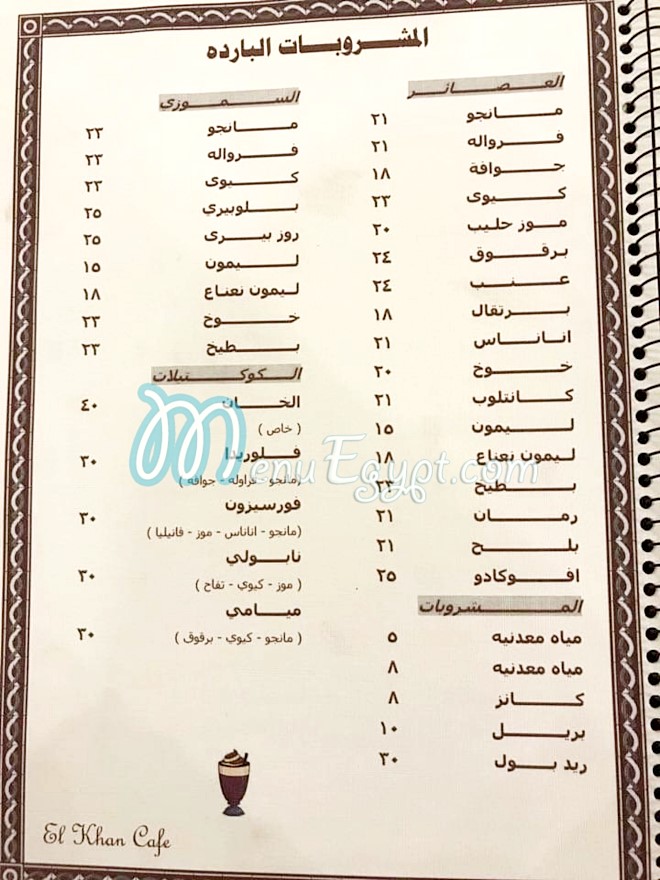 المشروبات البارده
العصائر
مانجو ٢١
فرواله ٢١
جوافة ١٨
كيوى ٢٣
موز حليب ٢٠
برقوق ٢٤
عنب ٢٤
برتقال ١٨
اناناس ٢١
خوخ ٢٠
كانتلوب ٢١
ليمون ١٥
ليمون نعناع ١٨
بطيخ ٢٣
رمان ٢١
بلح ٢١
افوكادو ٢٥
المشروبات
مياه معدنيه ٥
مياه معدنيه ٨
كانز ٨
بريل ١٠
ريد بول ٣٠
السموزى
مانجو ٢٣
فرواله ٢٣
كيوى ٢٣
بلوبيري ٢٥
روز بيرى ٢٥
ليمون ١٥
ليمون نعناع ١٨
خوخ ٢٣
بطيخ ٢٣
الكوكتيلات
الخان ٤٠
( خاص )
فلوريدا ٣٠
(مانجو - فراوله - جوافه )
فورسيزون ٣٠
(مانجو - اناناس - موز - فانيليا )
نابولي ٣٠
( موز - كيوي - تفاح )
ميامي ٣٠
( مانجو - كيوي - برقوق )
MenuEgypt.com
El Khan Cafe